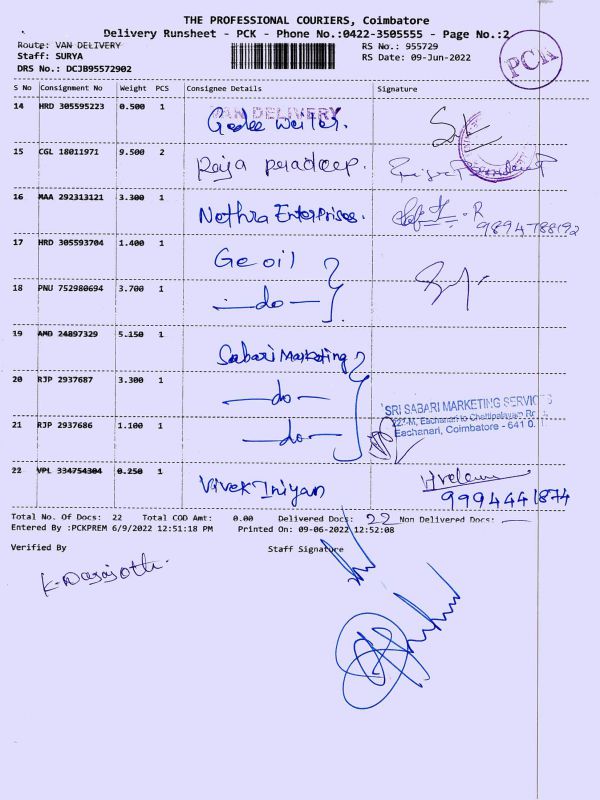 THE PROFESSIONAL COURIERS, Coimbatore
Delivery Runsheet - PCK - Phone No.:0422-3505555 - Page No.:2
Route: VAN DELIVERY
RS No.: 955729
Staff: SURYA
RS Date: 09-Jun-2022
DRS No.: DCJB95572902
PCK
S No Consignment No Weight PCS Consignee Details Signature
14 HRD 305595223 0.500 1 VAN DELIVERY
15 CGL 18011971 9.500 2 Priya pradeep.
16 MAA 292313121 3.300 1 Nethra Enterprises. R
9894788192
17 HRD 305593704 1.400 1 Ge oil
18 PNU 752980694 3.700 1 -do-
19 AMD 24897329 5.150 1 Sabari Marketing
20 RJP 2937687 3.300 1 -do-
SRI SABARI MARKETING SERVICES
21 RJP 2937686 1.100 1 -do-
Eachanari, Coimbatore - 641 0
22 VPL 334754304 0.250 1 Vivek Iniyan
9994441874
Total No. Of Docs: 22 Total COD Amt: 0.00 Delivered Docs: 22 Non Delivered Docs: —
Entered By :PCKPREM 6/9/2022 12:51:18 PM Printed On: 09-06-2022 12:52:08
Verified By Staff Signature